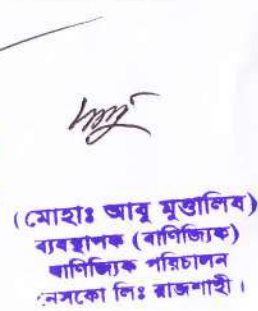 (মোহাঃ আবু মুত্তালিব)
ব্যবস্থাপক (বাণিজ্যিক)
বাণিজ্যিক পরিচালন
নেসকো লিঃ রাজশাহী।